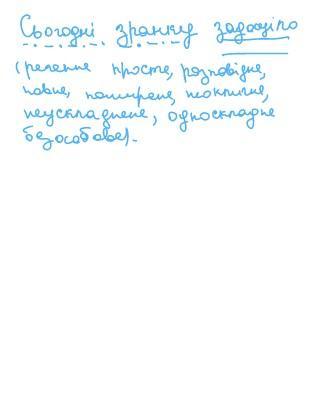 Сьогодні зранку задощіло
(речення просте, розповідне,
повне, поширене, неоклične,
неускладнене, односкладне
безособове).